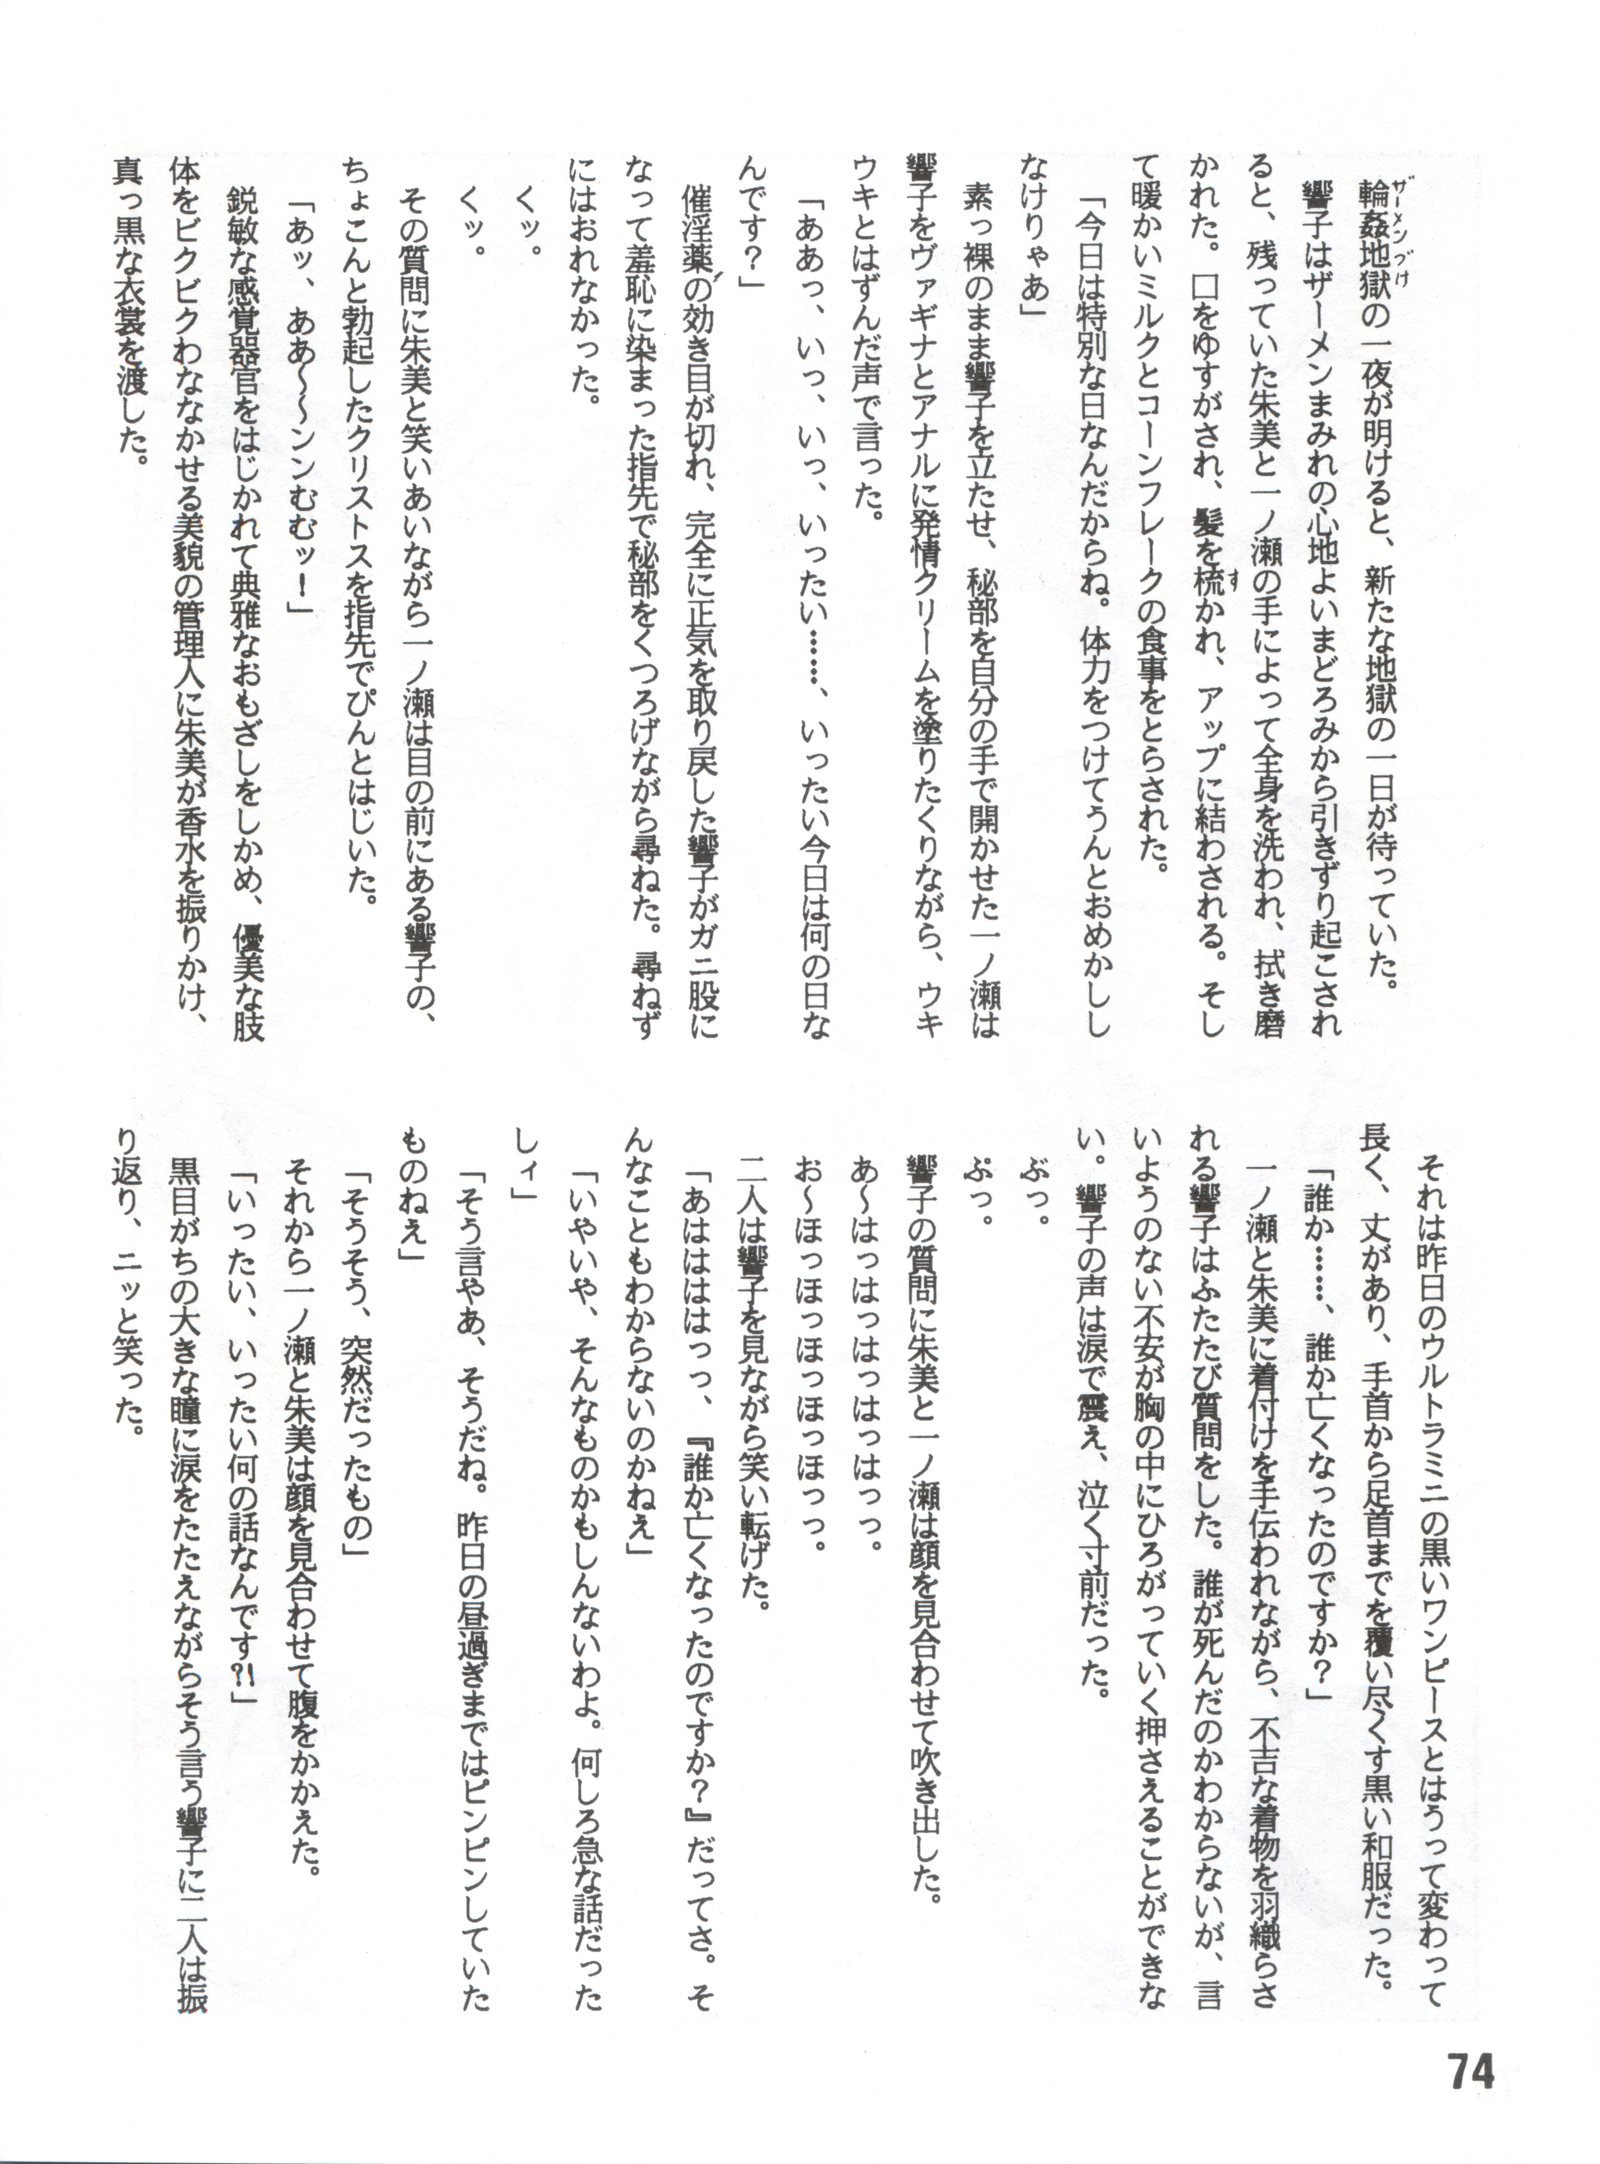 輪姦地獄の一夜が明けると、新たな地獄の一日が待っていた。
ザーメンづけ
響子はザーメンまみれの心地よいまどろみから引きずり起こされ
ると、残っていた朱美と一ノ瀬の手によって全身を洗われ、拭き磨
かれた。口をゆすがされ、髪を梳かれ、アップに結わされる。そし
す
て暖かいミルクとコーンフレークの食事をとらされた。
「今日は特別な日なんだからね。体力をつけてうんとおめかしし
なけりゃあ」
素っ裸のまま響子を立たせ、秘部を自分の手で開かせた一ノ瀬は
響子をヴァギナとアナルに発情クリームを塗りたくりながら、ウキ
ウキとはずんだ声で言った。
「ああっ、いっ、いっ、いったい……、いったい今日は何の日な
んです?」
催淫薬の効き目が切れ、完全に正気を取り戻した響子がガニ股に
なって羞恥に染まった指先で秘部をくつろげながら尋ねた。尋ねず
にはおれなかった。
クッ。
クッ。
その質問に朱美と笑いあいながら一ノ瀬は目の前にある響子の、
ちょこんと勃起したクリストスを指先でぴんとはじいた。
「あッ、ああ～～ンンむむッ!」
鋭敏な感覚器官をはじかれて典雅なおもざしをしかめ、優美な肢
体をビクビクわななかせる美貌の管理人に朱美が香水を振りかけ、
真っ黒な衣裳を渡した。
それは昨日のウルトラミニの黒いワンピースとはうって変わって
長く、丈があり、手首から足首までを覆い尽くす黒い和服だった。
「誰か……、誰か亡くなったのですか?」
一ノ瀬と朱美に着付けを手伝われながら、不吉な着物を羽織らさ
れる響子はふたたび質問をした。誰が死んだのかわからないが、言
いようのない不安が胸の中にひろがっていく押さえることができな
い。響子の声は涙で震え、泣く寸前だった。
ぶっ。
ぷっ。
響子の質問に朱美と一ノ瀬は顔を見合わせて吹き出した。
あ～はっはっはっはっはっはっっ。
お～ほっほっほっほっほっほっっ。
二人は響子を見ながら笑い転げた。
「あははははっっ、『誰か亡くなったのですか?』だってさ。そ
んなこともわからないのかねぇ」
「いやいや、そんなものかもしんないわよ。何しろ急な話だった
しィ」
「そう言やあ、そうだね。昨日の昼過ぎまではピンピンしていた
ものねぇ」
「そうそう、突然だったもの」
それから一ノ瀬と朱美は顔を見合わせて腹をかかえた。
「いったい、いったい何の話なんです?!」
黒目がちの大きな瞳に涙をたたえながらそう言う響子に二人は振
り返り、ニッと笑った。
74